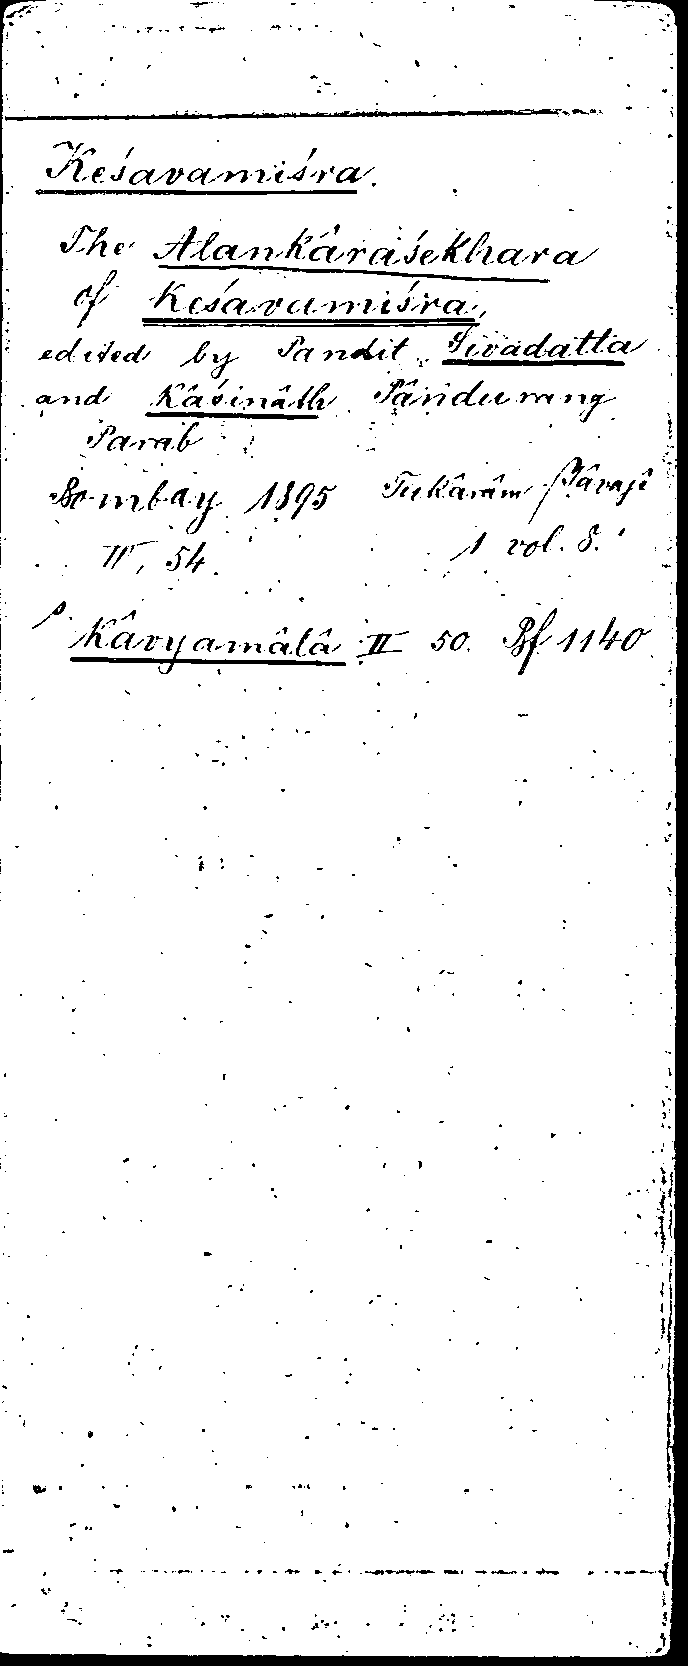 Keśavamiśra.
The Alankâraśekhara
of Keśavamiśra,
edited by Pandit Śivadatta
and Kâśinâth Pândurang
Parab
Bombay 1895 Tukârâm Jâvajî
IV, 54. 1 vol. 8.°
Kâvyamâlâ II 50. Bf 1140